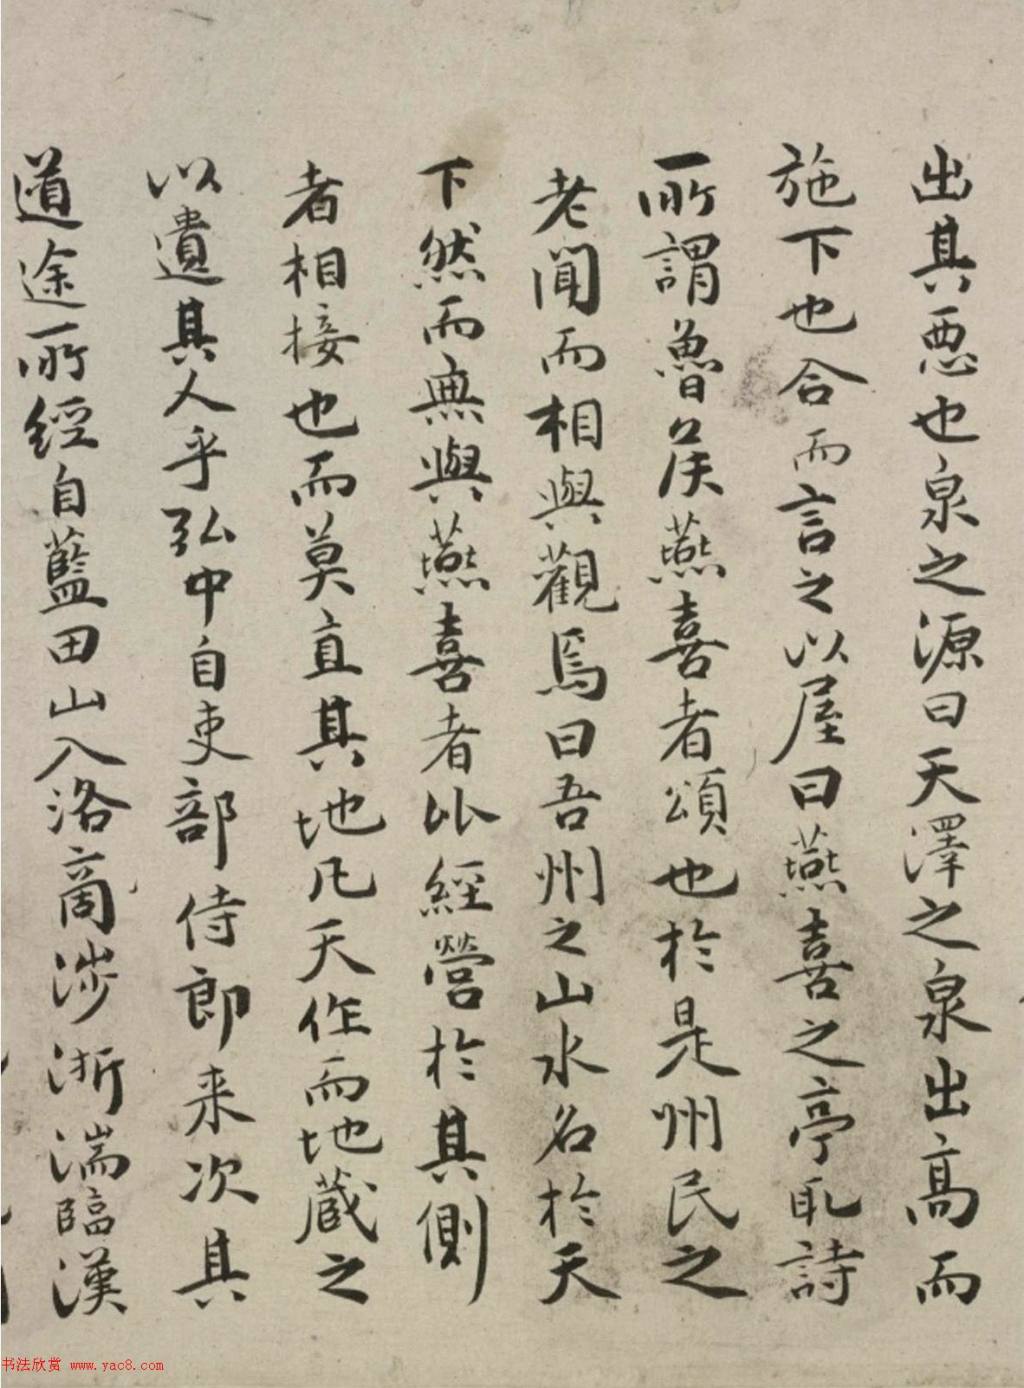 出其惡也泉之源曰天澤之泉出高而
施下也合而言之以屋曰燕喜之亭取詩
所謂魯侯燕喜者頌也於是州民之
老聞而相與觀焉曰吾州之山水名於天
下然而無與燕喜者比經營於其側
者相接也而莫直其地凡天作而地藏之
以遺其人乎弘中自吏部侍郎來次其
道途所經自藍田山入洛商涉淅湍臨漢
书法欣赏 www.yac8.com